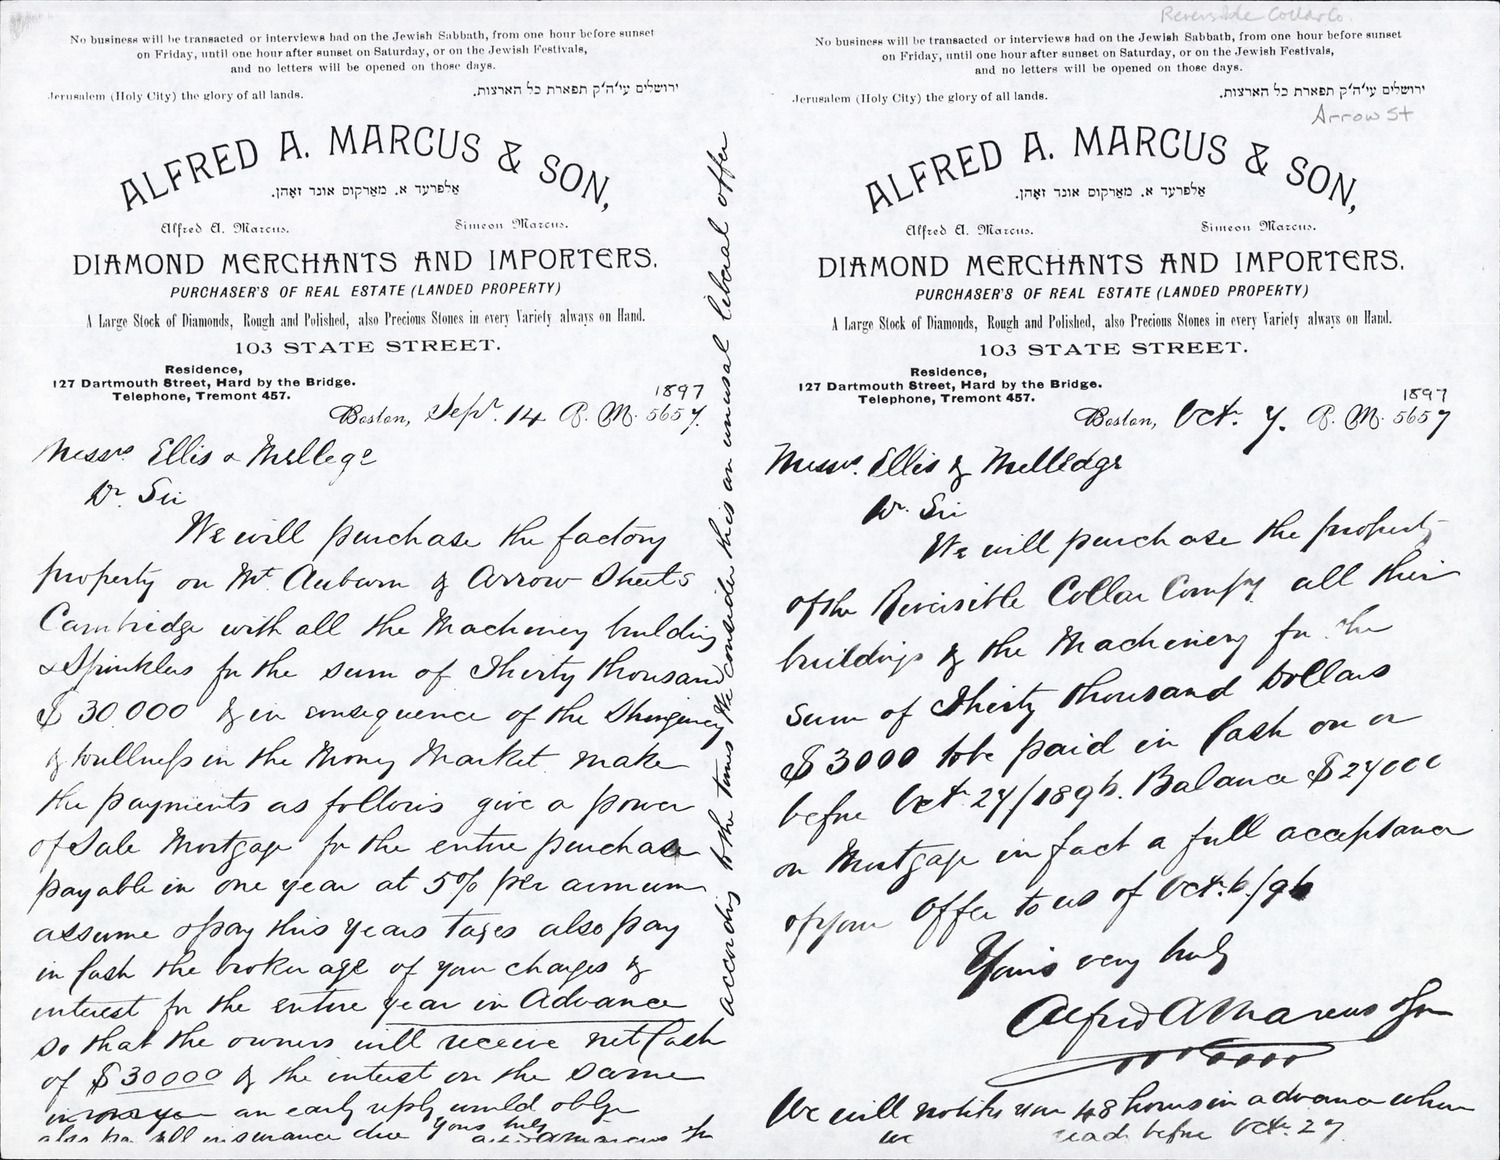 No business will be transacted or interviews had on the Jewish Sabbath, from one hour before sunset
on Friday, until one hour after sunset on Saturday, or on the Jewish Festivals,
and no letters will be opened on those days.
Jerusalem (Holy City) the glory of all lands.
ירושלים עי'ה'ק תפארת כל הארצות.
ALFRED A. MARCUS & SON,
אלפרעד א. מארקוס אונד זאהן.
Alfred A. Marcus.
Simeon Marcus.
DIAMOND MERCHANTS AND IMPORTERS.
PURCHASER'S OF REAL ESTATE (LANDED PROPERTY)
A Large Stock of Diamonds, Rough and Polished, also Precious Stones in every Variety always on Hand.
103 STATE STREET.
Residence,
127 Dartmouth Street, Hard by the Bridge.
Telephone, Tremont 457.
1897
Boston, Sepr. 14 A. M. 5657.
Messrs Ellis & Mellege
Dr. Sir
We will purchase the factory
property on Mt. Auburn & Arrow Streets
Cambridge with all the Machinery building
& Sprinklers for the sum of Thirty thousand
$ 30.000 & in consequence of the Stringency
& Dullness in the Money Market make
the payments as follows give a power
of Sale Mortgage for the entire purchase
payable in one year at 5% per annum
assume & pay this years taxes also pay
in Cash the brokerage of your charges &
interest for the entire year in Advance
so that the owners will receive net Cash
of $ 30000 & the interest on the same
in one year an early reply would oblige
also insurance due yours truly
according to the times We consider this an unusual liberal offer
Reversible Collar Co.
No business will be transacted or interviews had on the Jewish Sabbath, from one hour before sunset
on Friday, until one hour after sunset on Saturday, or on the Jewish Festivals,
and no letters will be opened on those days.
Jerusalem (Holy City) the glory of all lands.
ירושלים עי'ה'ק תפארת כל הארצות.
Arrow St
ALFRED A. MARCUS & SON,
אלפרעד א. מארקוס אונד זאהן.
Alfred A. Marcus.
Simeon Marcus.
DIAMOND MERCHANTS AND IMPORTERS.
PURCHASER'S OF REAL ESTATE (LANDED PROPERTY)
A Large Stock of Diamonds, Rough and Polished, also Precious Stones in every Variety always on Hand.
103 STATE STREET.
Residence,
127 Dartmouth Street, Hard by the Bridge.
Telephone, Tremont 457.
1897
Boston, Oct. 7. A. M. 5657
Messrs. Ellis & Melledge
Dr. Sir
We will purchase the property
of the Reversible Collar Compy all their
buildings & the Machinery for the
sum of Thirty thousand Dollars
$ 3000 to be paid in Cash on or
before Oct. 27/1896. Balance $ 27000
on Mortgage in fact a full acceptance
of your Offer to us of Oct. 6/96
Yours very truly
Alfred A Marcus & Son
We will notify you 48 hours in advance when
we ready before Oct. 27